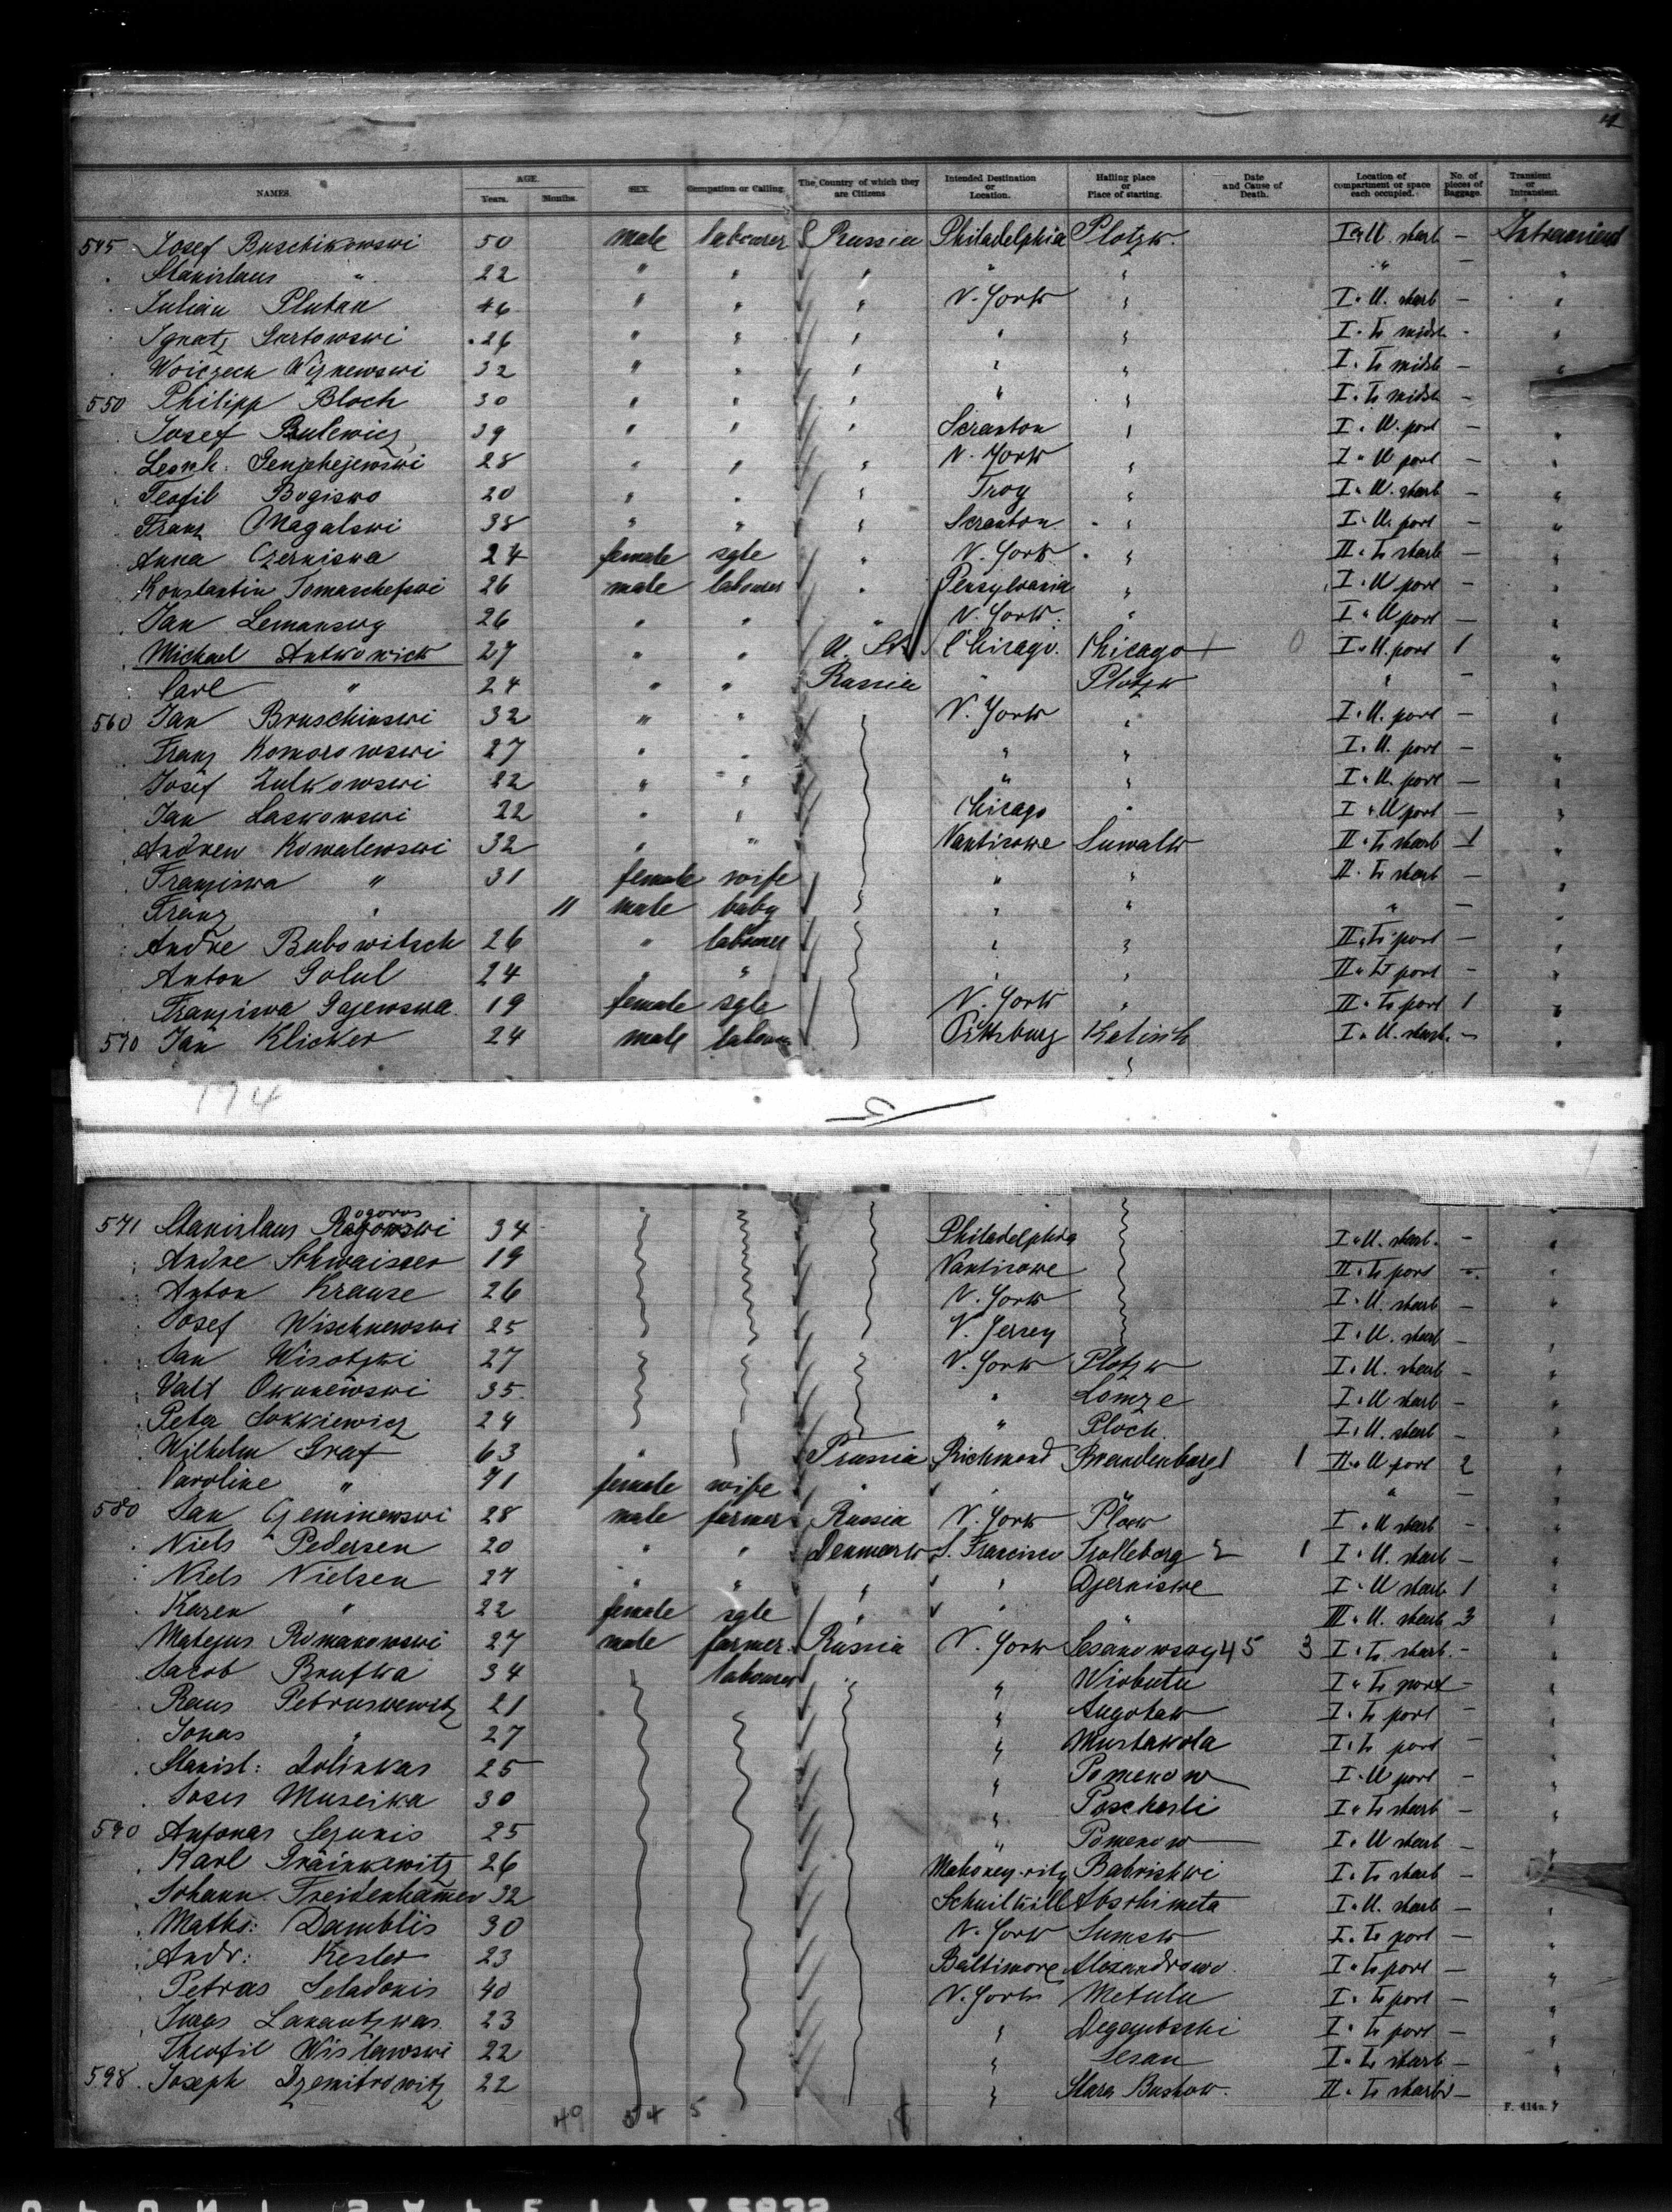 NAMES. AGE. Years. Months. SEX. Occupation or Calling. The Country of which they are Citizens Intended Destination or Location. Hailing place or Place of starting. Date and Cause of Death. Location of compartment or space each occupied. No. of pieces of Baggage. Transient or Intransient.
545 Josef Buschikowski 50 male labourer Russia Philadelphia Plotzk. I U. starb — Intransient
Stanislaus " 22 " " " " " " — "
Julian Plutan 46 " " " N. York " I " U. starb — "
Ignatz Gertowski 26 " " " " " I " Tr midsh - "
Woiczech Wiznewski 32 " " " " " I " Tr midsh — "
550 Philipp Bloch 30 " " " " " I " Tr midsh —
Josef Bulewicz 39 " " " Scranton " I " U. port — "
Leonh: 28 " " " N. York " I " U port — "
Teofil Bogisko 20 " " " Troy " I " U. starb — "
Franz Magalski 38 " " " Scranton " I " U. port — "
Anna Czerniska 24 female sgle " N. York " II " Tr starb — "
Konstantin 26 male labourer " Pensylvania " I " U port — "
Jan Lemansky 26 " " " N. York. " I " U port — "
Michael Antkowick 27 " " U. St. Chicago. Chicago 0 I " U. port 1 "
Carl " 24 " " Russia " Plotzk " — "
560 Jan Bruschinski 32 " " N. York " I " U. port — "
Franz Komorowski 27 " " " " I " U. port — "
Josef Zulkowski 22 " " " " I " U. port — "
Jan Laskowski 22 " " Chicago " I " U port — "
Andrew Kowalewski 32 " " Nantikoke Suwalk II " Tr starb 1 "
Franziska " 31 female wife " " II " Tr starb — "
Franz " 11 male baby " " " — "
Andre Bubowitsch 26 " labourer " " II " Tr port — "
Anton Golul 24 " " " " II " Tr port — "
Franziska Gajewska 19 female sgle N. York " II " Tr port 1 "
570 Jan Klicker 24 male labourer Pittsburg Kalisch I " U. starb. — "
774
571 Stanislaus Rogowski 34 Philadelphia I " U. starb. — "
Andre 19 Nantikoke II " Tr port — "
Anton Krause 26 N. York I " U. starb — "
Josef Wischnewski 25 N. Jersey I " U. starb — "
Jan Wisotzki 27 N. York Plotzk I " U. starb — "
Valt Okunewski 35 " Lomze I " U starb — "
Peter Sokkiewicz 24 " Plock. I " U. starb — "
Wilhelm Graf 63 " Prussia Richmond Brandenburg 1 1 II " U port 2 "
Caroline " 71 female wife " " " " — "
580 Jan Czeminewski 28 male farmer Russia N. York Plock I " U starb — "
Niels Pedersen 20 " " Denmark S. Francisco Trolleborg 2 1 I " U. starb — "
Niels Nielsen 27 " " " " Djerniske I " U starb 1 "
Karen " 22 female sgle " " " III " U. starb 3 "
Matejus Romanowski 27 male farmer Russia N. York 45 3 I " Tr starb. — "
Jacob 34 labourer " " Wirbutu I " Tr port — "
21 " Augotak I " Tr port — "
Jonas " 27 " Mustakola I " Tr port — "
Stanisl: Dolinkas 25 " Pomenow I " U port — "
Joses Museika 30 " Poscherli I " Tr starb — "
590 Antonas 25 " Pomenow I " U starb — "
Karl Gräinkewitz 26 Mahoney-city Babrishki I " Tr starb — "
Johann Freidenhamer 32 I " U. starb — "
Maths: Damblis 30 N. York I " Tr port — "
Andr: Kesler 23 Baltimore Alexandrowo. I " Tr port — "
Petras Seladonis 40 N. York Metulu I " Tr port — "
23 " I " Tr port — "
Theofil Wislawski 22 " Lesau I " Tr starb — "
598 Joseph Dzemitrowitz 22 " Stara Buskow. II " Tr starb — "
49 54 5
F. 414a.